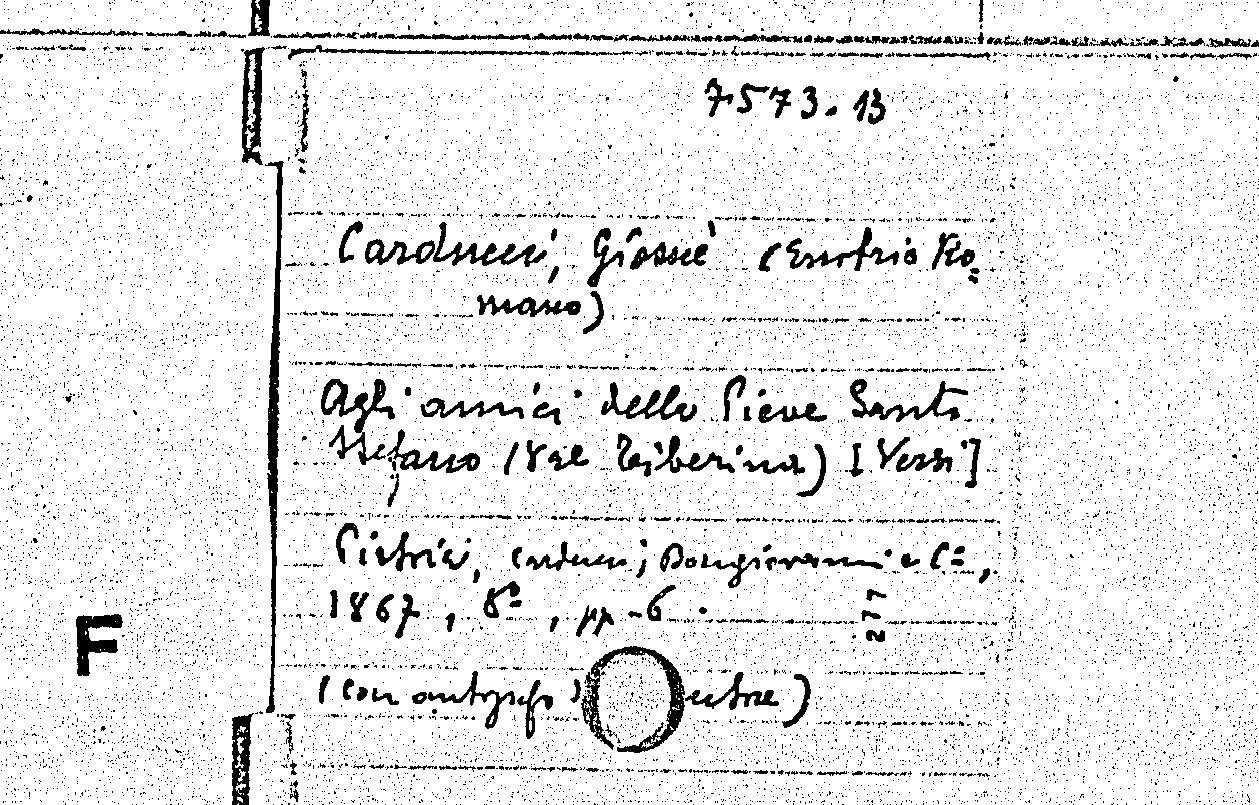 7573.13
Carducci, Giosuè (Enotrio Ro=
mano)
Agli amici della Pieve Santo
Stefano (Val Tiberina) [Versi]
Carducci, Bongiovanni e C.º,
1867, 8º, pp. 6.
277
F
(con autografo